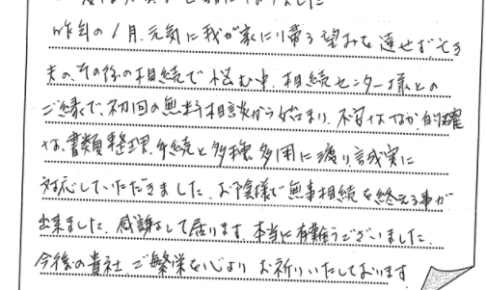 昨年の1月、元気に我が家に帰る望みを達せず、
その後の相続で悩む中、相続センター様との
ご縁で、初回の無料相談から始まり、不安ななか、的確
な、書類整理、手続と多種、多用に渡り誠実に
対応していただきました。お陰様で無事相続を終える事が
出来ました。感謝して居ります。本当に有難うございました。
今後の貴社、ご繁栄を心より お祈りいたしております。